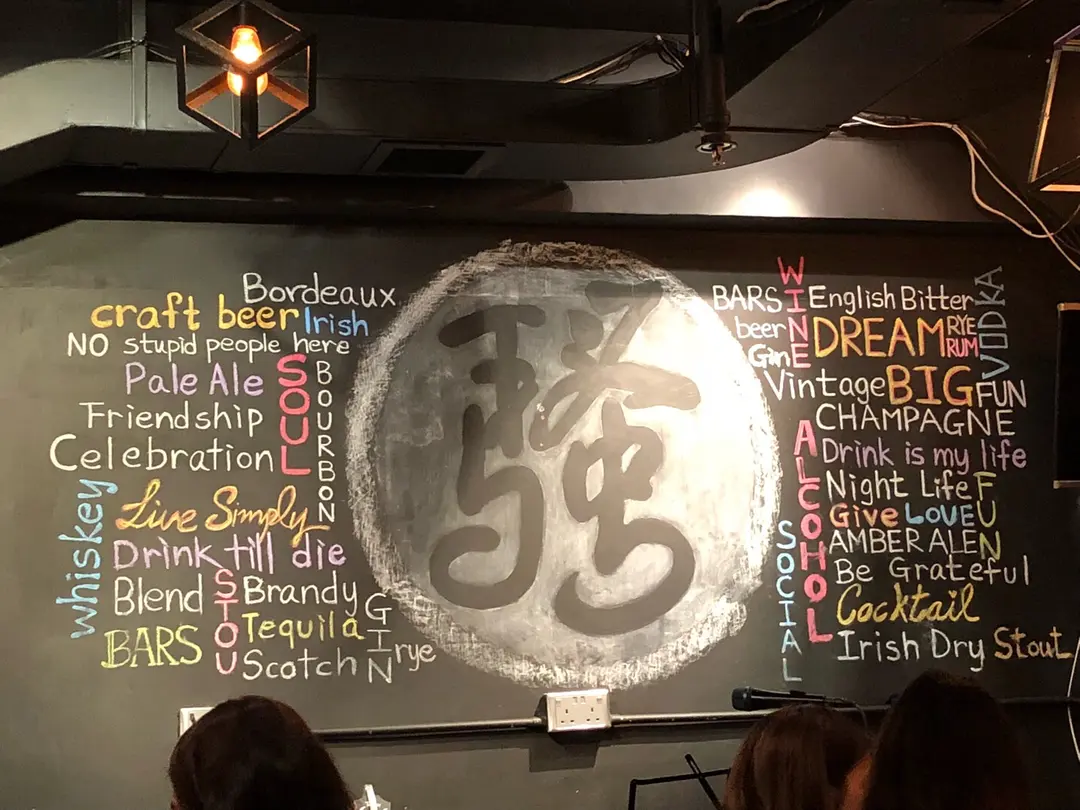 Bordeaux
craft beer Irish
NO stupid people here
Pale Ale
SOUL
BOURBON
Friendship
Celebration
whiskey
Live Simply
Drink till die
Blend
STOU
Brandy
BARS
Tequila
GIN
Scotch
rye
騷
WINE
BARS
English Bitter
VODKA
beer
DREAM
RYE
RUM
Vintage BIG FUN
CHAMPAGNE
ALCOHOL
Drink is my life
Night Life
FUN
Give LOVE
SOCIAL
AMBER ALE
Be Grateful
Cocktail
Irish Dry Stout